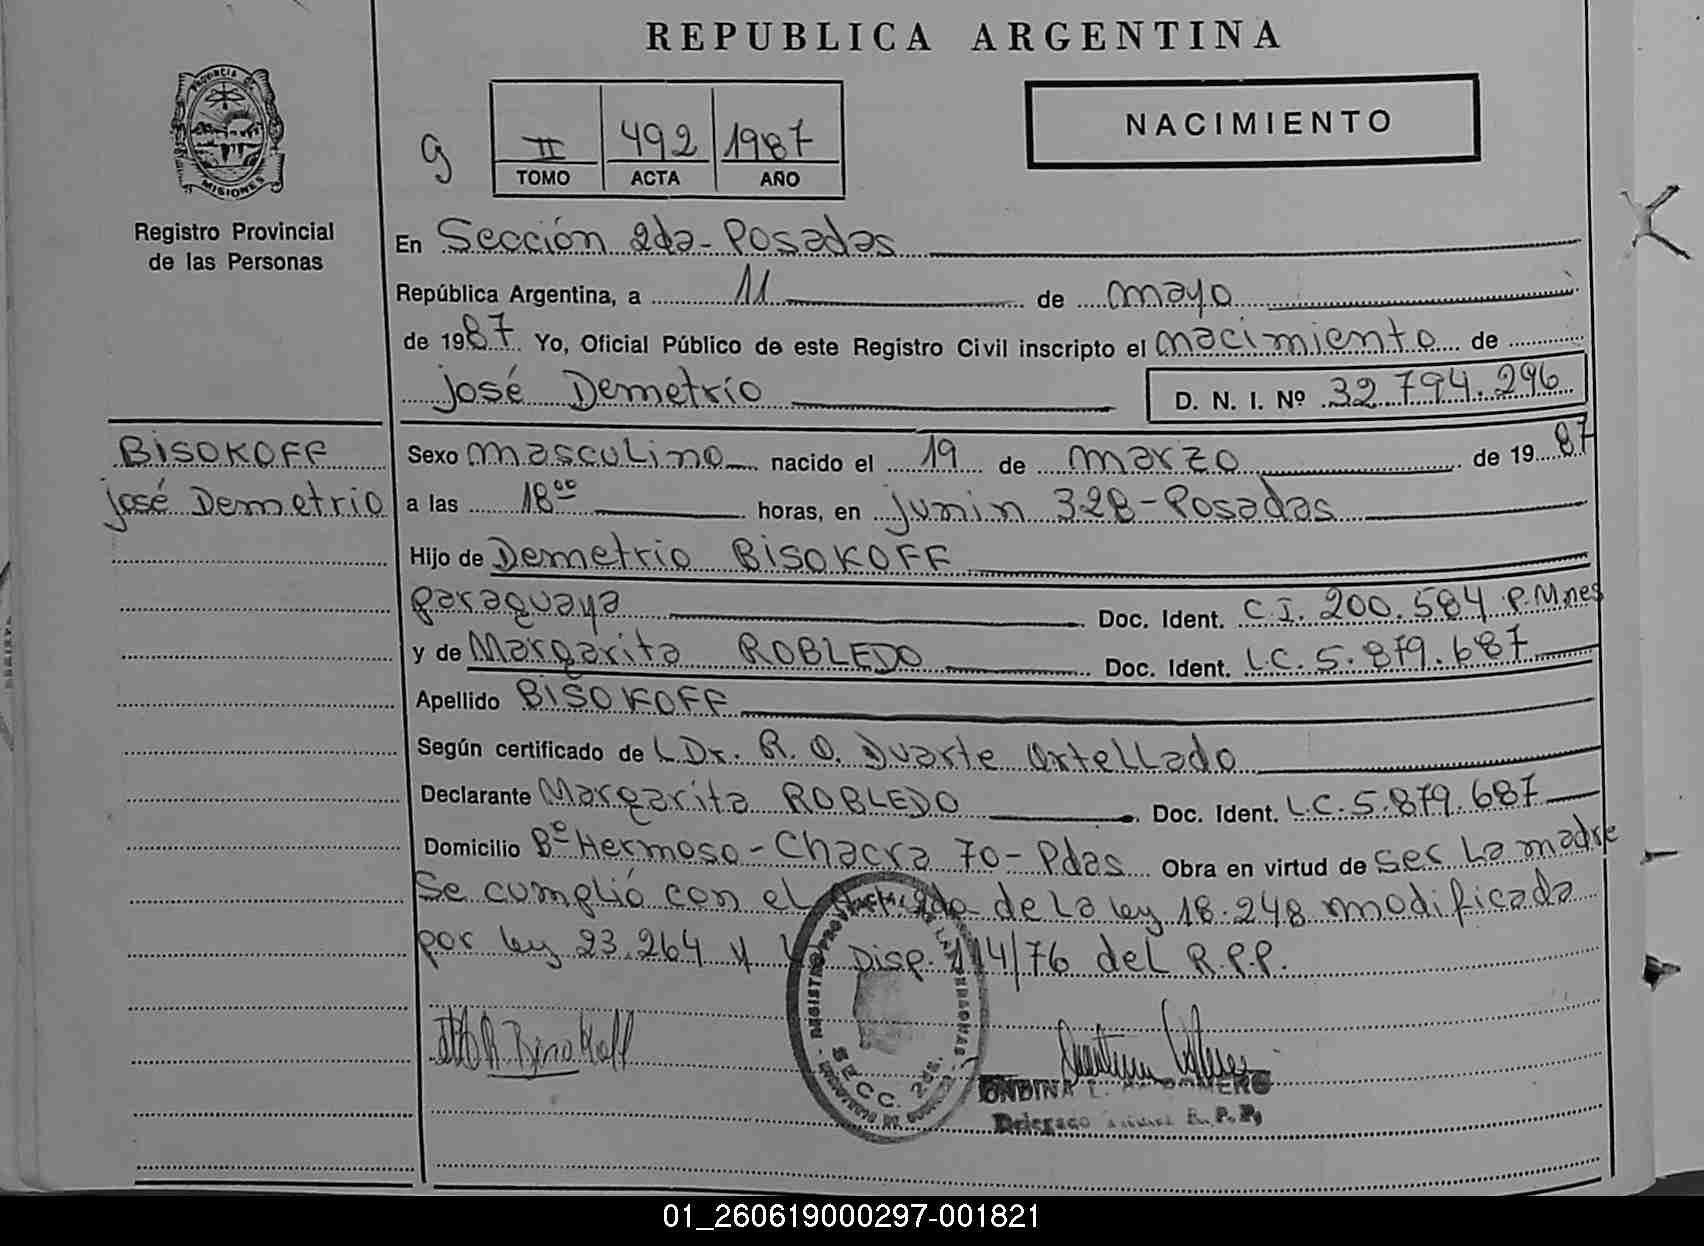 REPUBLICA ARGENTINA
PROVINCIA DE
MISIONES
Registro Provincial
de las Personas
g
II 492 1987
TOMO ACTA AÑO
NACIMIENTO
En Sección 2da- Posadas
República Argentina, a 11 de mayo
de 1987 Yo, Oficial Público de este Registro Civil inscripto el nacimiento de
José Demetrio D. N. I. Nº 32.794.296
BISOKOFF
José Demetrio
Sexo masculino nacido el 19 de marzo de 1987
a las 18⁰⁰ horas, en Junin 328-Posadas
Hijo de Demetrio BISOKOFF
paraguaya Doc. Ident. C.I. 200.584 P.Mnes
y de Margarita ROBLEDO Doc. Ident. L.C. 5.879.687
Apellido BISOKOFF
Según certificado de L Dr. R. O. Duarte Ortellado
Declarante Margarita ROBLEDO Doc. Ident. L.C. 5.879.687
Domicilio Bº Hermoso-Chacra 70-Pdas Obra en virtud de ser La madre
Se cumplió con el de La ley 18.248 modificada
por ley 23.264 y Disp. 114/76 del R.P.P.
SECC. 2da.
ONDINA L. ROMERO
R. P. P.
01_260619000297-001821